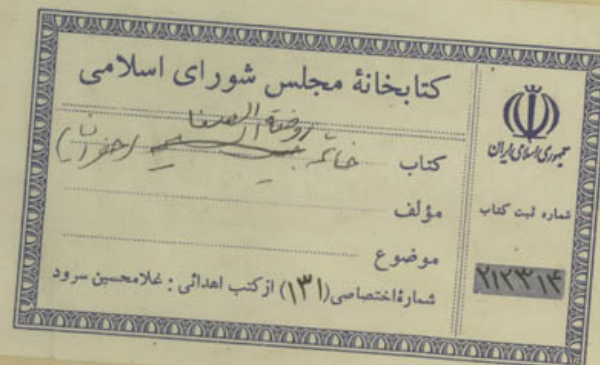 کتابخانهٔ مجلس شورای اسلامی
روضة الصفا
کتاب خاتمه (جغرافیا)
مؤلف
موضوع
شمارهٔ اختصاصی (۱۳۱) از کتب اهدائی : غلامحسین سرود
جمهوری اسلامی ایران
شماره ثبت کتاب
۲۱۲۳۱۴